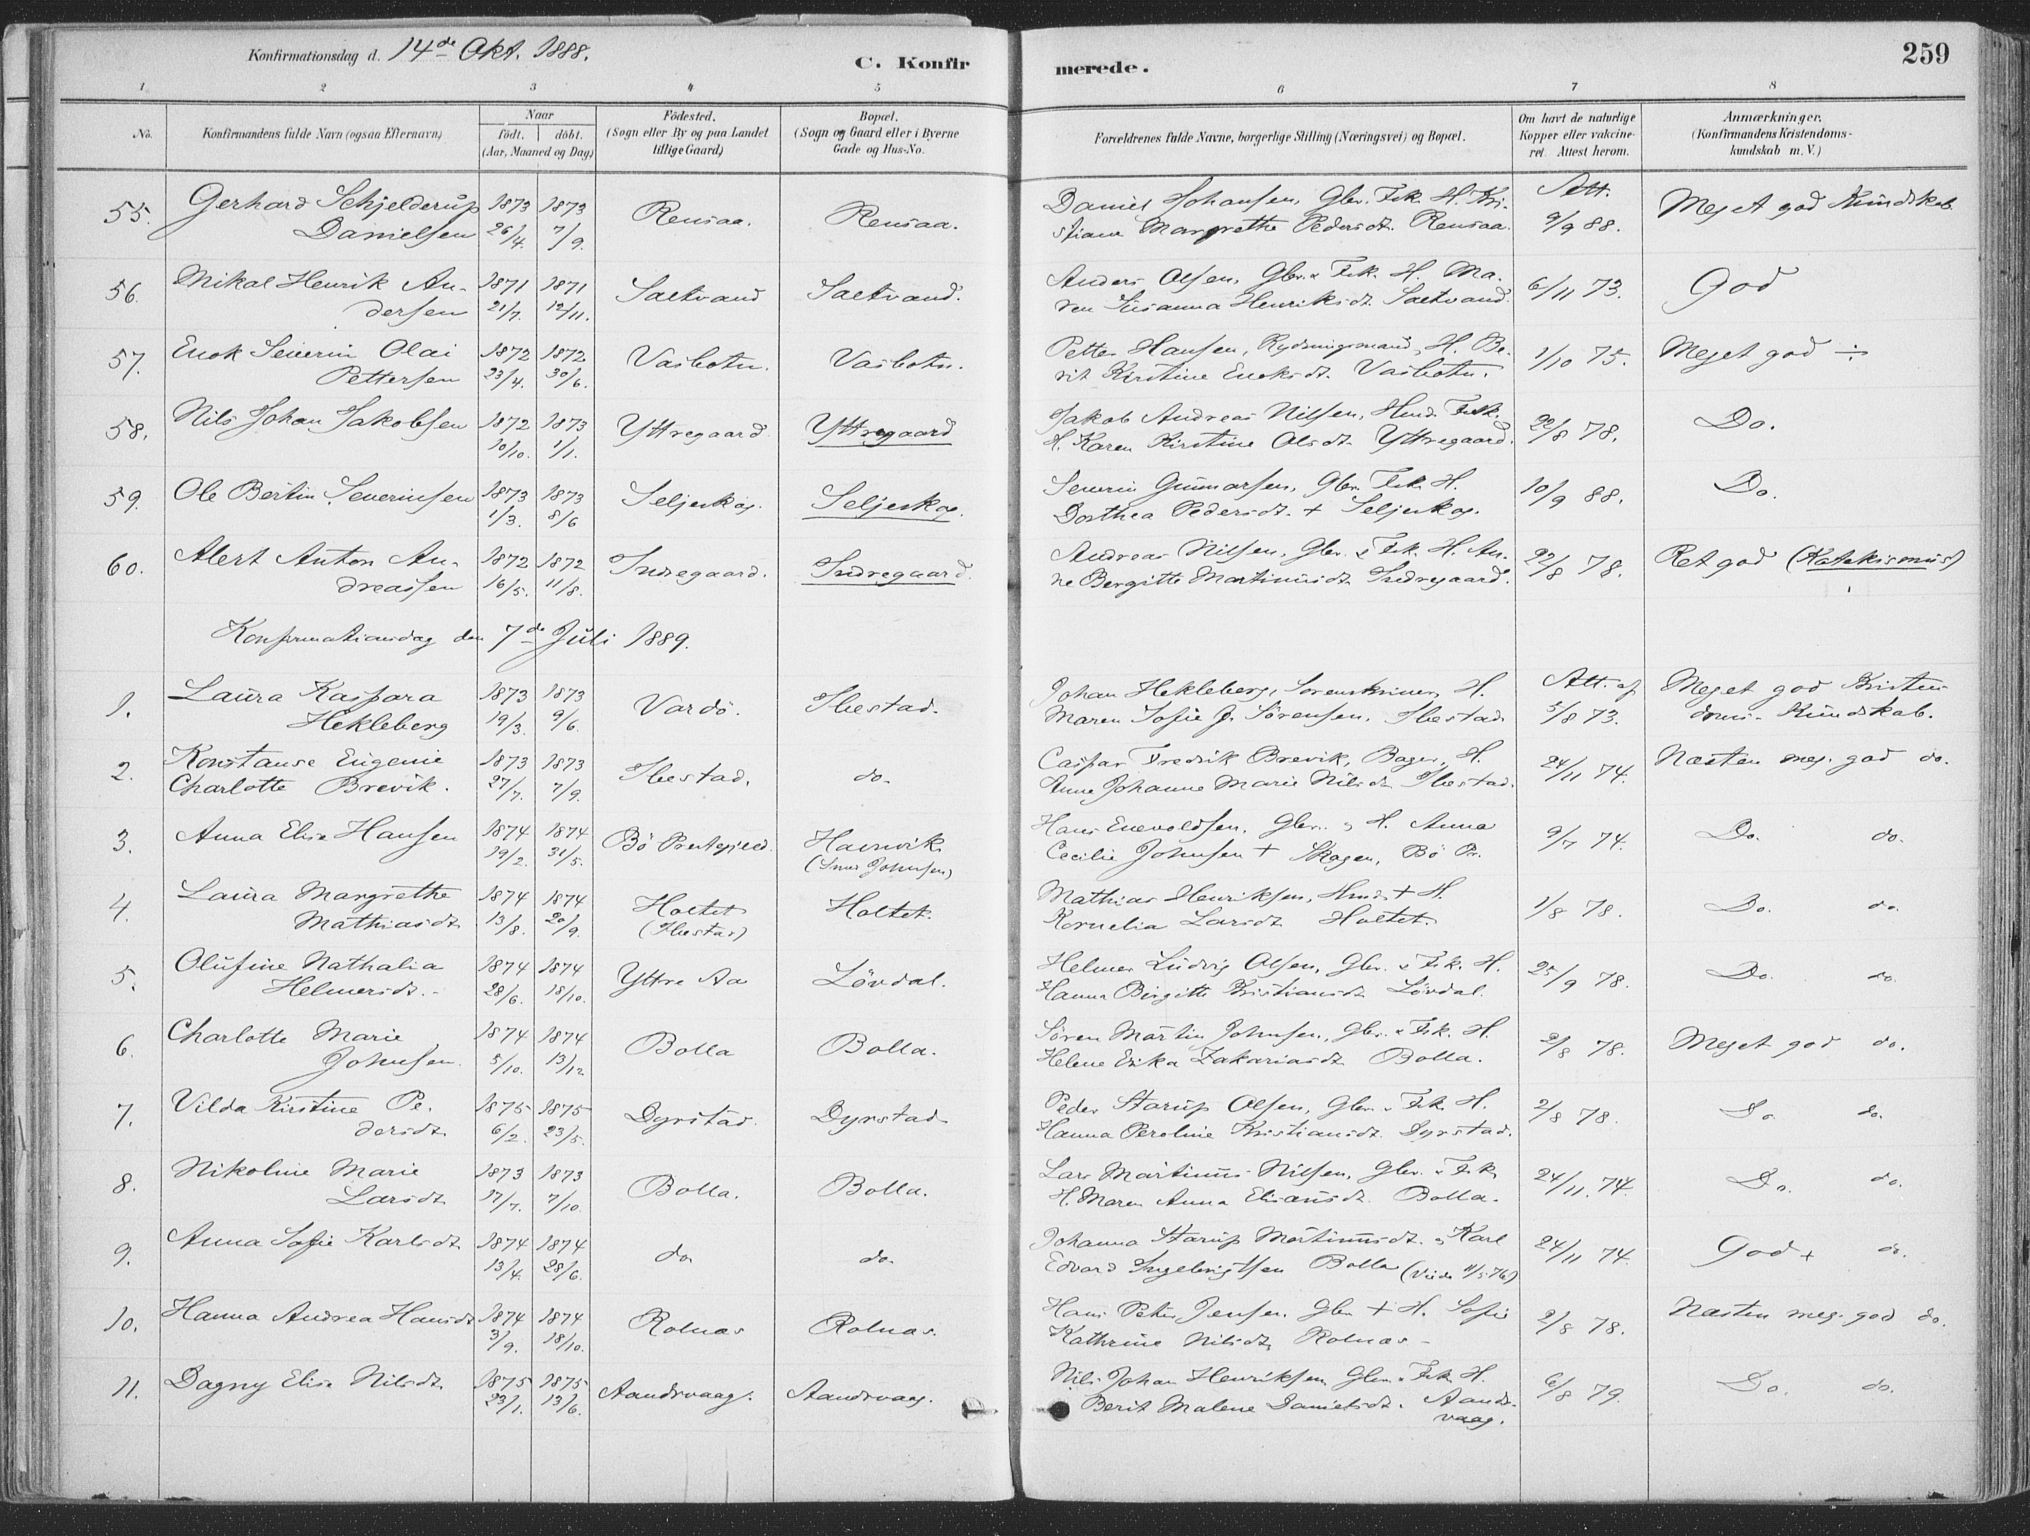 Konfirmationsdag d. 14de Okt. 1888.
C. Konfirmerede.
259
1 2 3 4 5 6 7 8
No. Konfirmandens fulde Navn (ogsaa Efternavn) Naar født. døbt. (Aar, Maaned og Dag) Fødested. (Sogn eller By og paa Landet tillige Gaard) Bopæl. (Sogn og Gaard eller i Byerne Gade og Hus-No. Forældrenes fulde Navne, borgerlige Stilling (Næringsvei) og Bopæl. Om havt de naturlige Kopper eller vakcineret. Attest herom. Anmærkninger. (Konfirmandens Kristendomskundskab m. V.)
55. Gerhard Schjelderup 1873 1873 Rensaa. Rensaa. Daniel Johansen, Gbr. Fsk. H. Kri- Att. Meget god Kundskab
Danielsen 26/4. 7/9. stiane Margrethe Pedersdt. Rensaa. 9/9 88.
56. Mikal Henrik An- 1871 1871 Saltvand Saltvand. Anders Olsen, Gbr. & Fsk. H. Ma- 6/11 73. God
dersen 21/7. 12/11. ren Susanna Henriksdt. Saltvand.
57. Enok Severin Olai 1872 1872 Vasbotn. Vasbotn. Petter Hansen, Rydningsmand, H. Be- 1/10 75. Meget god ÷
Pettersen 23/4. 30/6. rit Kirstine Enoksdt. Vasbotn.
58. Nils Johan Jakobsen 1872 1873 Yttregaard. Yttregaard Jakob Andreas Nilsen, Hmd. Fsk. 22/8 78. Do.
10/10. 1/1. H. Karen Kirstine Olsdt. Yttregaard.
59. Ole Bertin Severinsen 1873 1873 Seljeskog. Seljeskog. Severin Gunnarsen, Gbr. Fsk. H. 10/9 88. Do.
1/3. 8/6 Dorthea Pedersdt. + Seljeskog.
60. Alert Anton An- 1872 1872 Indregaard. Indregaard. Andreas Nilsen, Gbr. & Fsk. H. An- 22/8 78. Ret god (Katekismus)
dreassen 16/5. 11/8. ne Bergitte Martinusdt. Indregaard.
Konfirmationsdag den 7de Juli 1889.
1. Laura Kaspara 1873 1873 Vardö. Ibestad. Johan Hekleberg, Sorenskriver, H. Att. af Meget god Kristen-
Hekleberg 19/3. 9/6. Maren Sofie J. Sørensen. Ibestad. 5/8 73. doms-Kundskab.
2. Konstanse Eugenie 1873 1873 Ibestad. do. Caspar Fredrik Brevik, Bager, H. 24/11 74. Næsten meg. god do.
Charlotte Brevik. 27/7. 7/9. Anne Johanne Marie Nilsdt. Ibestad.
3. Anna Elise Hansen 1874 1874 Bö Prestegjeld. Havnvik Hans Enevoldsen, Gbr. & H. Anna 9/7 74. Do. do.
19/2. 31/5. Johnsen) Cecilie Johnsen + Skagen, Bö Pr.
4. Laura Margrethe 1874 1874 Holtet Holtet. Mathias Henriksen, Hmd. + H. 1/8 78. Do. do.
Mathiasdt. 13/8. 20/9. (Ibestad) Kornelia Larsdt. Holtet.
5. Olufine Nathalia 1874 1874 Yttre Aa Lövdal. Helmer Ludvig Olsen, Gbr. & Fsk. H. 25/9 78. Do. do.
Helmersdt. 28/6. 18/10. Hanna Birgitte Kristiansdt. Lövdal.
6. Charlotte Marie 1874 1874 Bolla Bolla. Søren Martin Johnsen, Gbr. & Fsk. H. 2/8 78. Meget god do.
Johnsen. 5/10. 13/12 Helene Erika Zakariasdt. Bolla.
7. Vilda Kirstine Pe- 1875 1875 Dyrstad. Dyrstad Peder Starup Olsen, Gbr. & Fsk. H. 2/8 78. Do. do.
dersdt. 6/2. 23/5. Hanna Peroline Kristiansdt. Dyrstad.
8. Nikoline Marie 1873 1873 Bolla. Bolla. Lars Martinus Nilsen, Gbr. & Fsk. 24/11. 74. Do. do.
Larsdt. 17/7. 7/10. H. Maren Anna Eliasdt. Bolla.
9. Anna Sofie Karlsdt. 1874 1874 do. do. Johanna Starup Martinusdt. & Karl 24/11 74. God + do.
13/4. 28/6. Edvard Ingebrigtsen Bolla (Viede 11/5 76)
10. Hanna Andrea Hansdt. 1874 1874 Rolnæs Rolnæs. Hans Peter Jensen, Gbr. + H. Sofie 2/8 78. Næsten meg. god do.
3/9. 18/10. Kathrine Nilsdt. Rolnæs.
11. Dagny Elise Nilsdt. 1875 1875 Aandsvaag. Aandsvaag. Nils Johan Henriksen, Gbr. & Fsk. H. 6/8 79. Do. do.
23/1. 13/6. Berit Malene Danielsdt. Aands-
vaag.